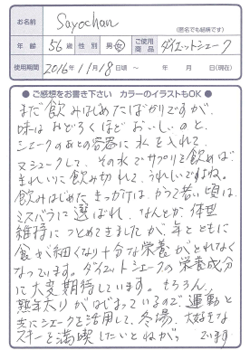 お名前 Sayochan (匿名でも結構です)
年齢 56歳 性別 男・女 ご使用商品 ダイエットシェーク
使用期間 2016年11月18日頃 ~ 年 月 日(現在)
● ご感想をお書き下さい カラーのイラストもOK ●
まだ飲みはじめたばかりですが、
味はおどろくほどおいしいのと、
シェークのあとの容器に水を入れて
又シェークして、その水でサプリを飲めば
きれいに飲み切れて、うれしいですね。
飲みはじめたきっかけは、かつて若い頃は
ミスバラに選ばれ、なんとか体型
維持につとめてきましたが、年とともに
食が細くなり十分な栄養がとれなく
なっています。ダイエットシェークの栄養成分
に大変期待しています。もちろん、
熟年太りがはじまっているので運動と
共にシェークを活用して、冬場、大好きな
スキーを満喫したいとねがっ
ています